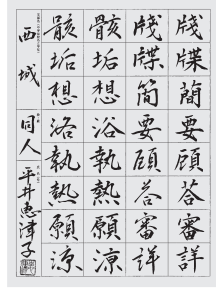 牋牒簡要顧答審詳
牋牒簡要顧答審詳
骸垢想浴執熱願涼
骸垢想浴執熱願涼
西城
同人
平井惠津子